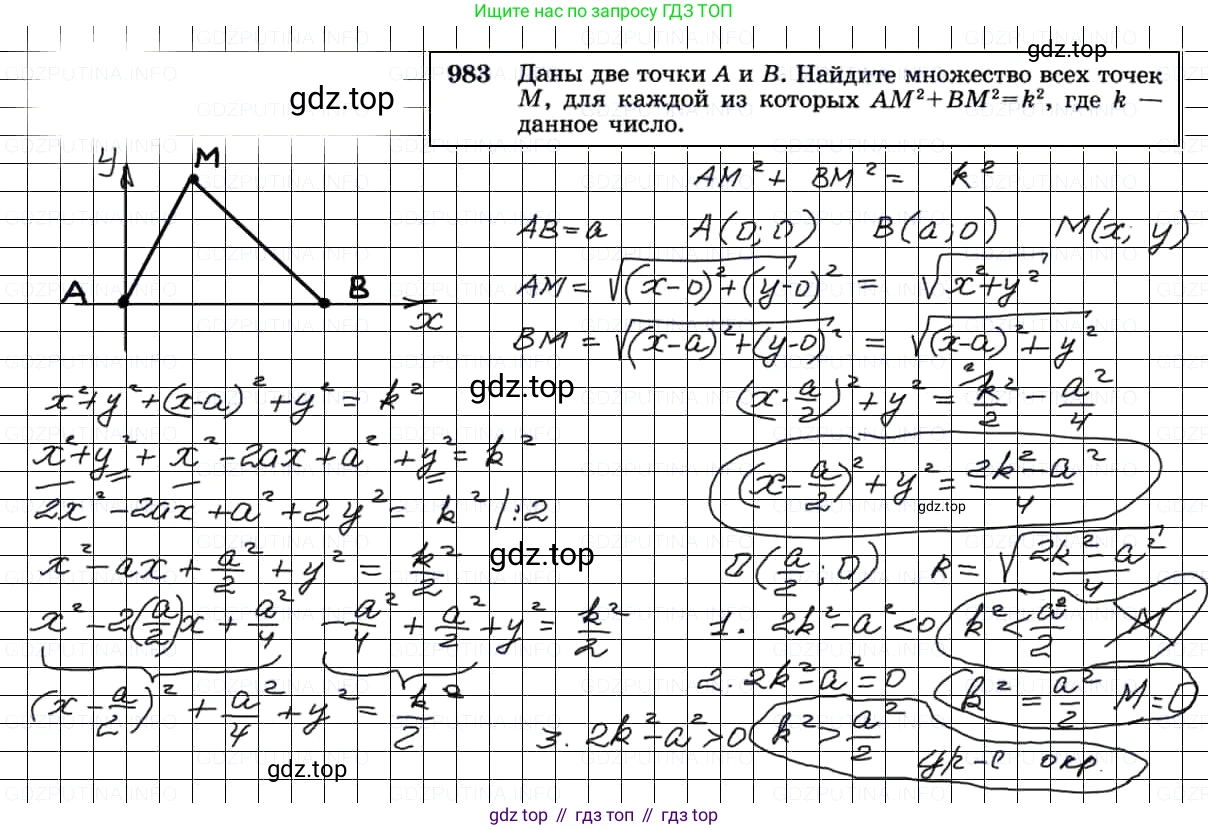 Ищите нас по запросу ГДЗ ТОП
gdz.top
gdz.top
983 Даны две точки A и B. Найдите множество всех точек
M, для каждой из которых AM²+BM²=k², где k —
данное число.
y M
A B
x
AM² + BM² = k²
AB = a A(0; 0) B(a; 0) M(x; y)
AM = √((x-0)²+(y-0)²) = √(x²+y²)
BM = √((x-a)²+(y-0)²) = √((x-a)²+y²)
gdz.top
x²+y²+(x-a)²+y² = k²
x²+y²+x²-2ax+a²+y² = k²
2x²-2ax+a²+2y² = k² |:2
gdz.top
x²-ax+a²/2+y² = k²/2
x²-2(a/2)x+a²/4 -a²/4+a²/2+y² = k²/2
(x-a/2)²+a²/4+y² = k²/2
gdz.top
(x-a/2)²+y² = ²k²/2 - a²/4
(x-a/2)²+y² = (2k²-a²)/4
gdz.top
O(a/2; 0) R = √((2k²-a²)/4)
1. 2k²-a²<0 k²<a²/2 M
2. 2k²-a²=0 k²=a²/2 M=O
3. 2k²-a²>0 k²>a²/2
ур-е окр.
gdz.top // гдз топ // gdz top